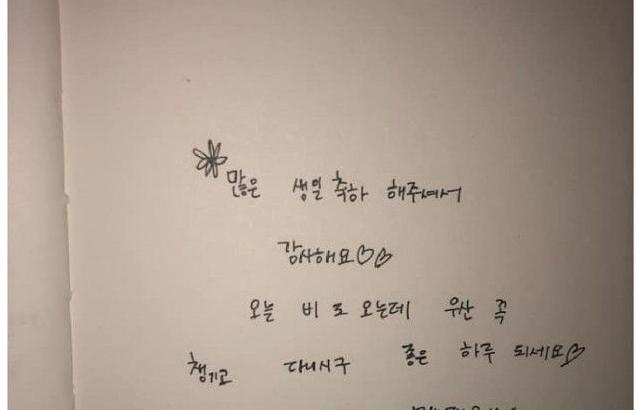 많은 생일 축하 해주셔서
감사해요♡♡
오늘 비 도 오는데 우산 꼭
챙기고 다니시구 좋은 하루 되세요♡